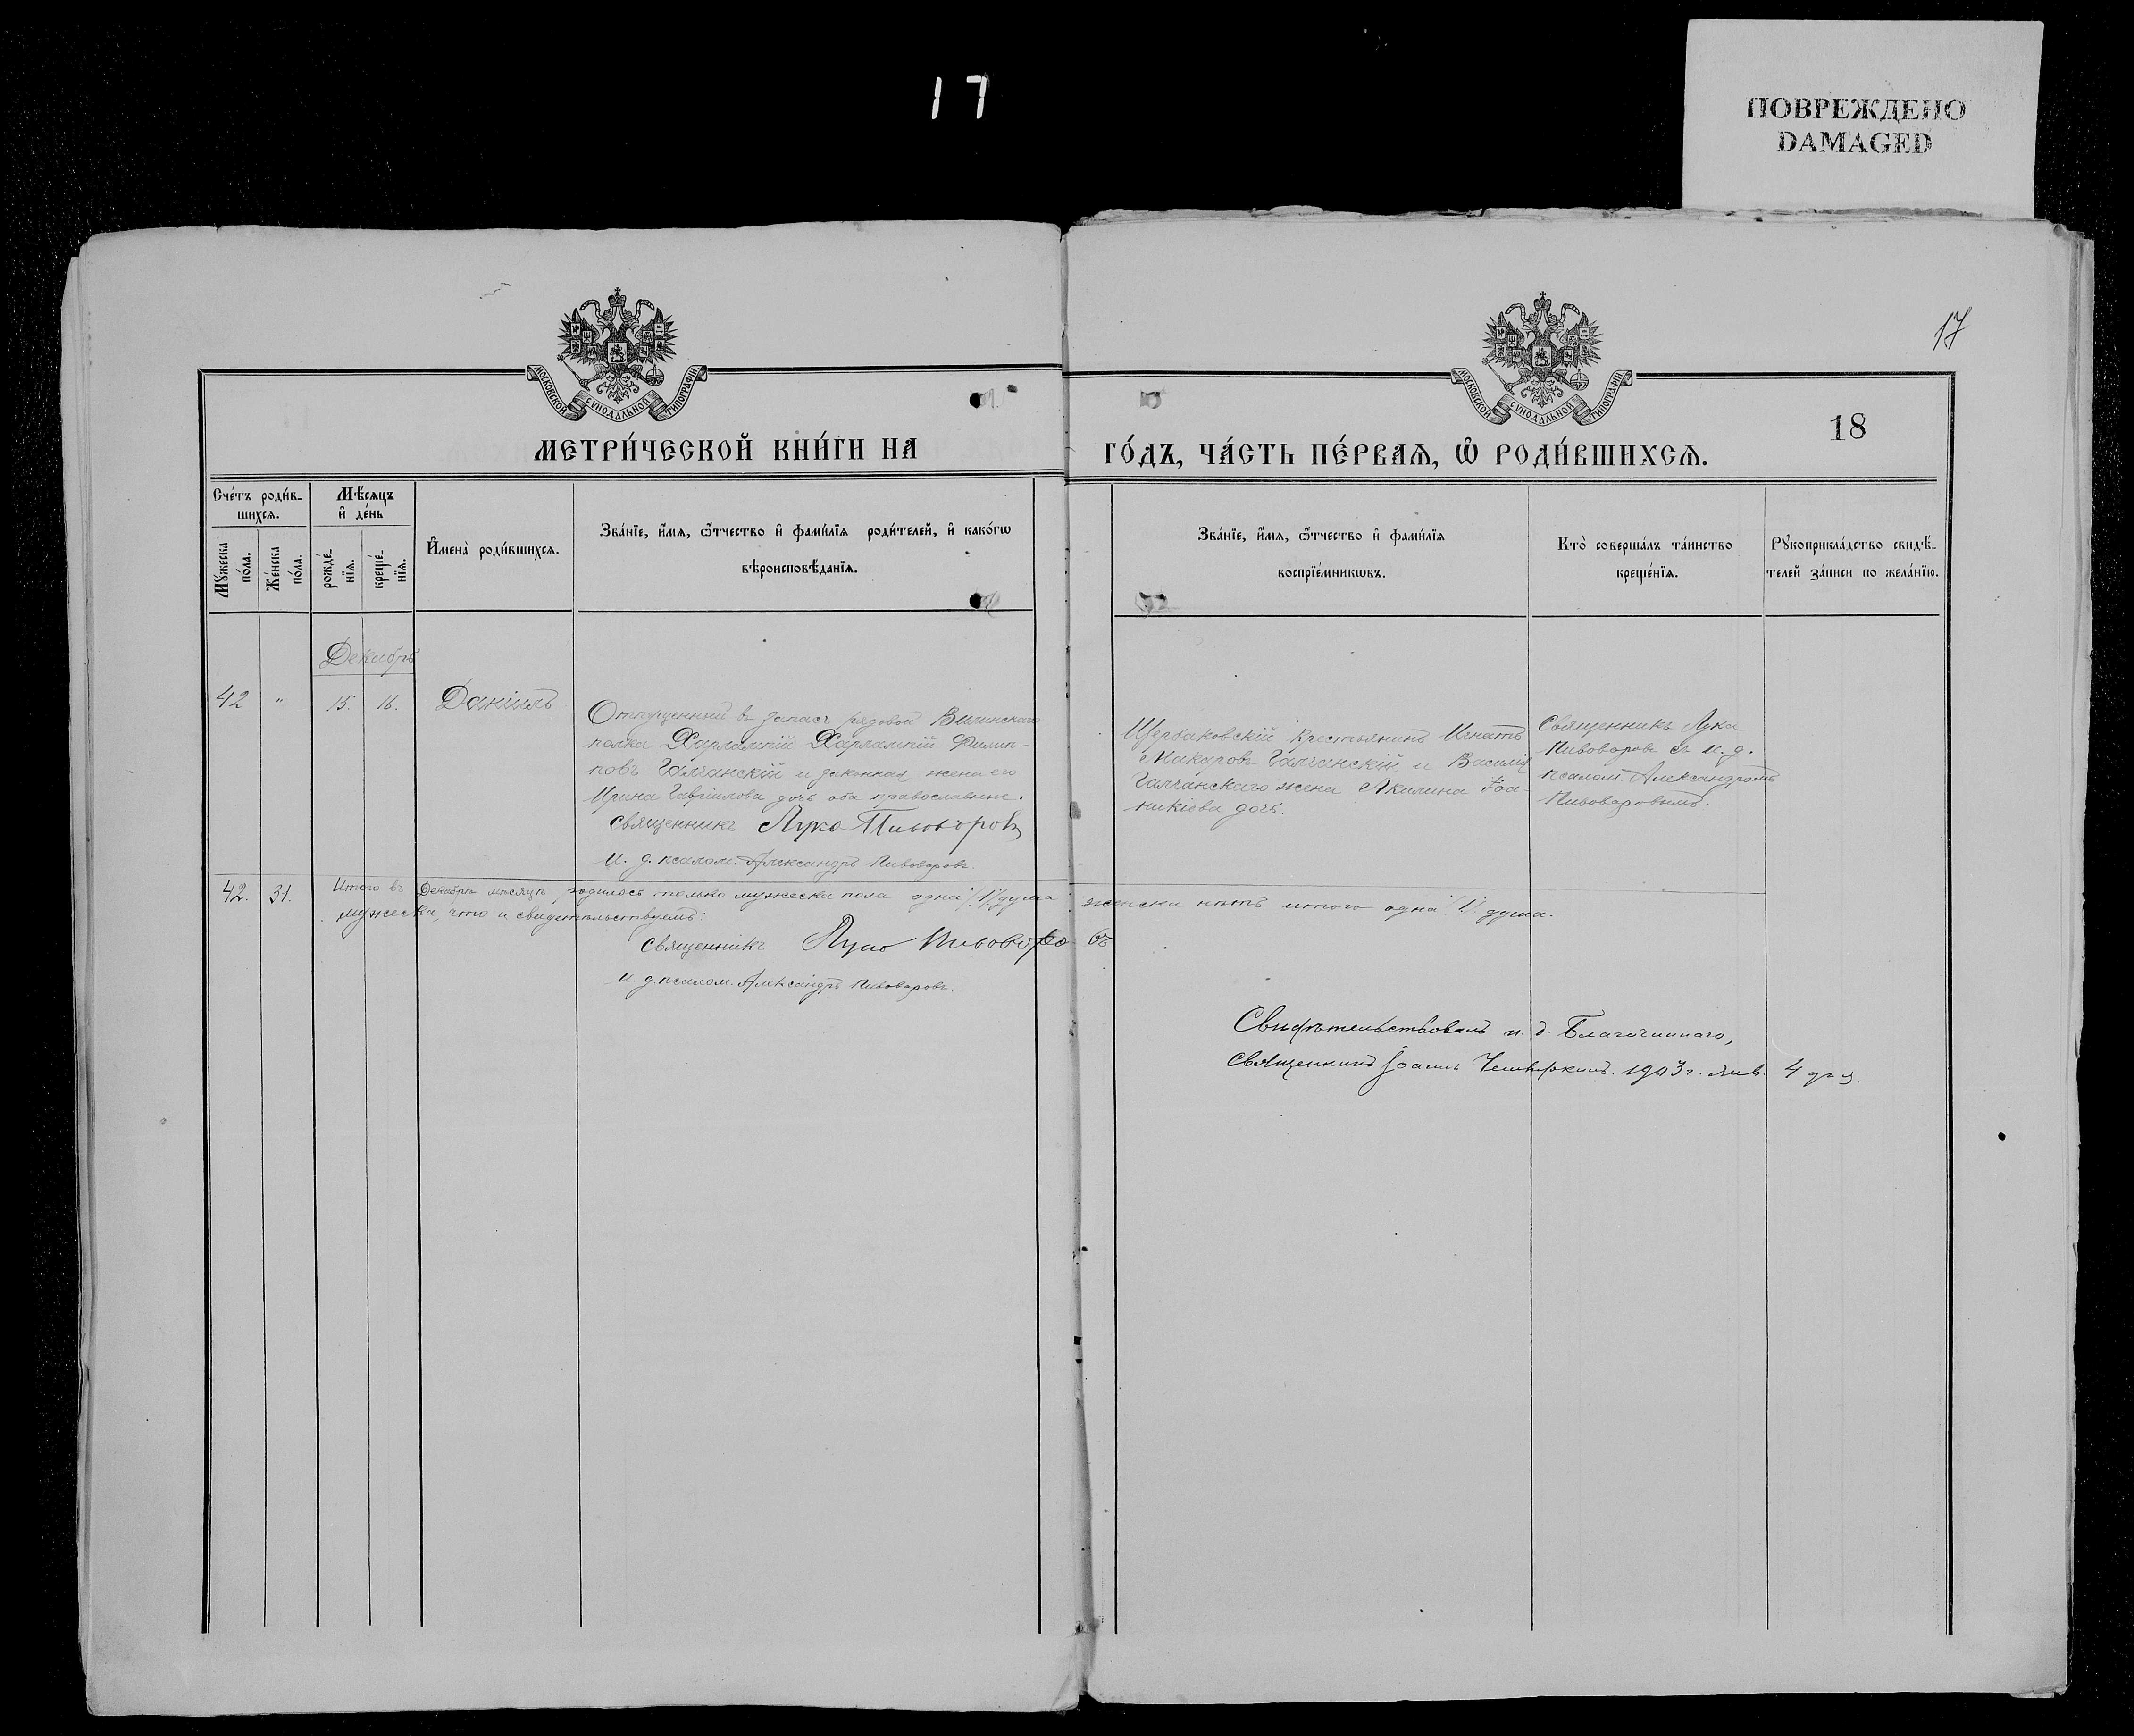 17
ПОВРЕЖДЕНО
DAMAGED
17
МОСКОВСКОЙ СѴНОДАЛЬНОЙ ТИПОГРАФІИ
МОСКОВСКОЙ СѴНОДАЛЬНОЙ ТИПОГРАФІИ
18
МЕТРИ́ЧЕСКОЙ КНИ́ГИ НА
ГО́ДЪ, ЧА́СТЬ ПЕ́РВАѦ, Ѽ РОДИ́ВШИХСѦ.
Сче́тъ роди́в-
шихсѧ.
Мѣ́сѧцъ
и҆ де́нь
Мꙋжеска
по́ла.
Же́нска
по́ла.
рожде́-
нїѧ.
креще́-
нїѧ.
И҆мена̀ роди́вшихсѧ.
Зва́нїе, и҆́мѧ, ѻ҆́тчество и҆ фами́лїѧ роди́телей, и҆ како́гѡ
вѣроисповѣ́данїѧ.
Зва́нїе, и҆́мѧ, ѻ҆́тчество и҆ фами́лїѧ
воспрїе́мникѡвъ.
Кто̀ соверша́лъ та́инство
креще́нїѧ.
Рꙋкоприкла́дство свидѣ́-
телей за́писи по жела́нїю.
Декабрь
42 " 15. 16. Даніилъ
Отпущенный въ запасъ рядовой Вилинскаго
полка Харлампій Харлампій Филип-
повъ Галчанскій и законная жена его
Ирина Гавріилова дочь оба православные.
Священникъ Лука Пивоваровъ
И. д. псалом. Александръ Пивоваровъ.
Щербаковскій крестьянинъ Игнатъ
Макаровъ Галчанскій и Василія
Галчанскаго жена Акилина Іоа-
никіева дочь.
Священникъ Лука
Пивоваровъ съ и. д.
псалом. Александромъ
Пивоваровымъ.
42. 31. Итого въ Декабрѣ мѣсяцѣ родилось только мужеска пола одна /1/ душа женска нѣтъ итого одна /1/ душа.
мужеска, что и свидетельствуемъ:
Священникъ Лука Пивоваровъ
И. д. псалом. Александръ Пивоваровъ.
Свидѣтельствовалъ и. д. Благочиннаго,
Священникъ Іоаннъ 1903 г. янв. 4 дня.